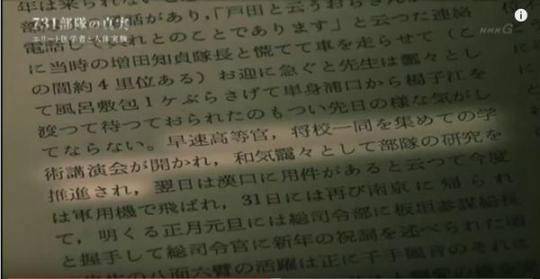 731部隊の真実
エリート医学者と人体実験
NHK G
年は来られないと
話があり，「戸田と云うおらさんが
電話してくれとのことであります」と云つた連絡
に当時の増田知貞隊長と慌てて車を走らせて（
の間約4里位ある）お迎に急ぐと先生は飄々とし
て風呂敷包1ケぶらさげて単身浦口から楊子江を
渡つて待つておられたのもつい先日の様な気がし
てならない。早速高等官，将校一同を集めての学
術講演会が開かれ，和気靄々として部隊の研究を
推進され，翌日は漢口に用件があると云つて今度
は軍用機で飛ばれ，31日には再び南京に帰られ
て，明くる正月元旦には総司令部に板垣参謀総長
と握手して総司令官に新年の祝詞を述べられた頃
の八面六臂の活躍は正に千手観音のそれに